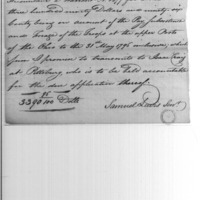 three hundred ninety Dollars and ninety six
Cents being on account of the Pay Subsistence
and Forage of the Troops at the upper Posts
of the River to the 31 May 1796 inclusive, which
sum I promise to transmit to Isaac Craig
at Pittsburg who is to be held accountable
for the due application thereof
5390 96/100 Dolls
Samuel Lewis Senr